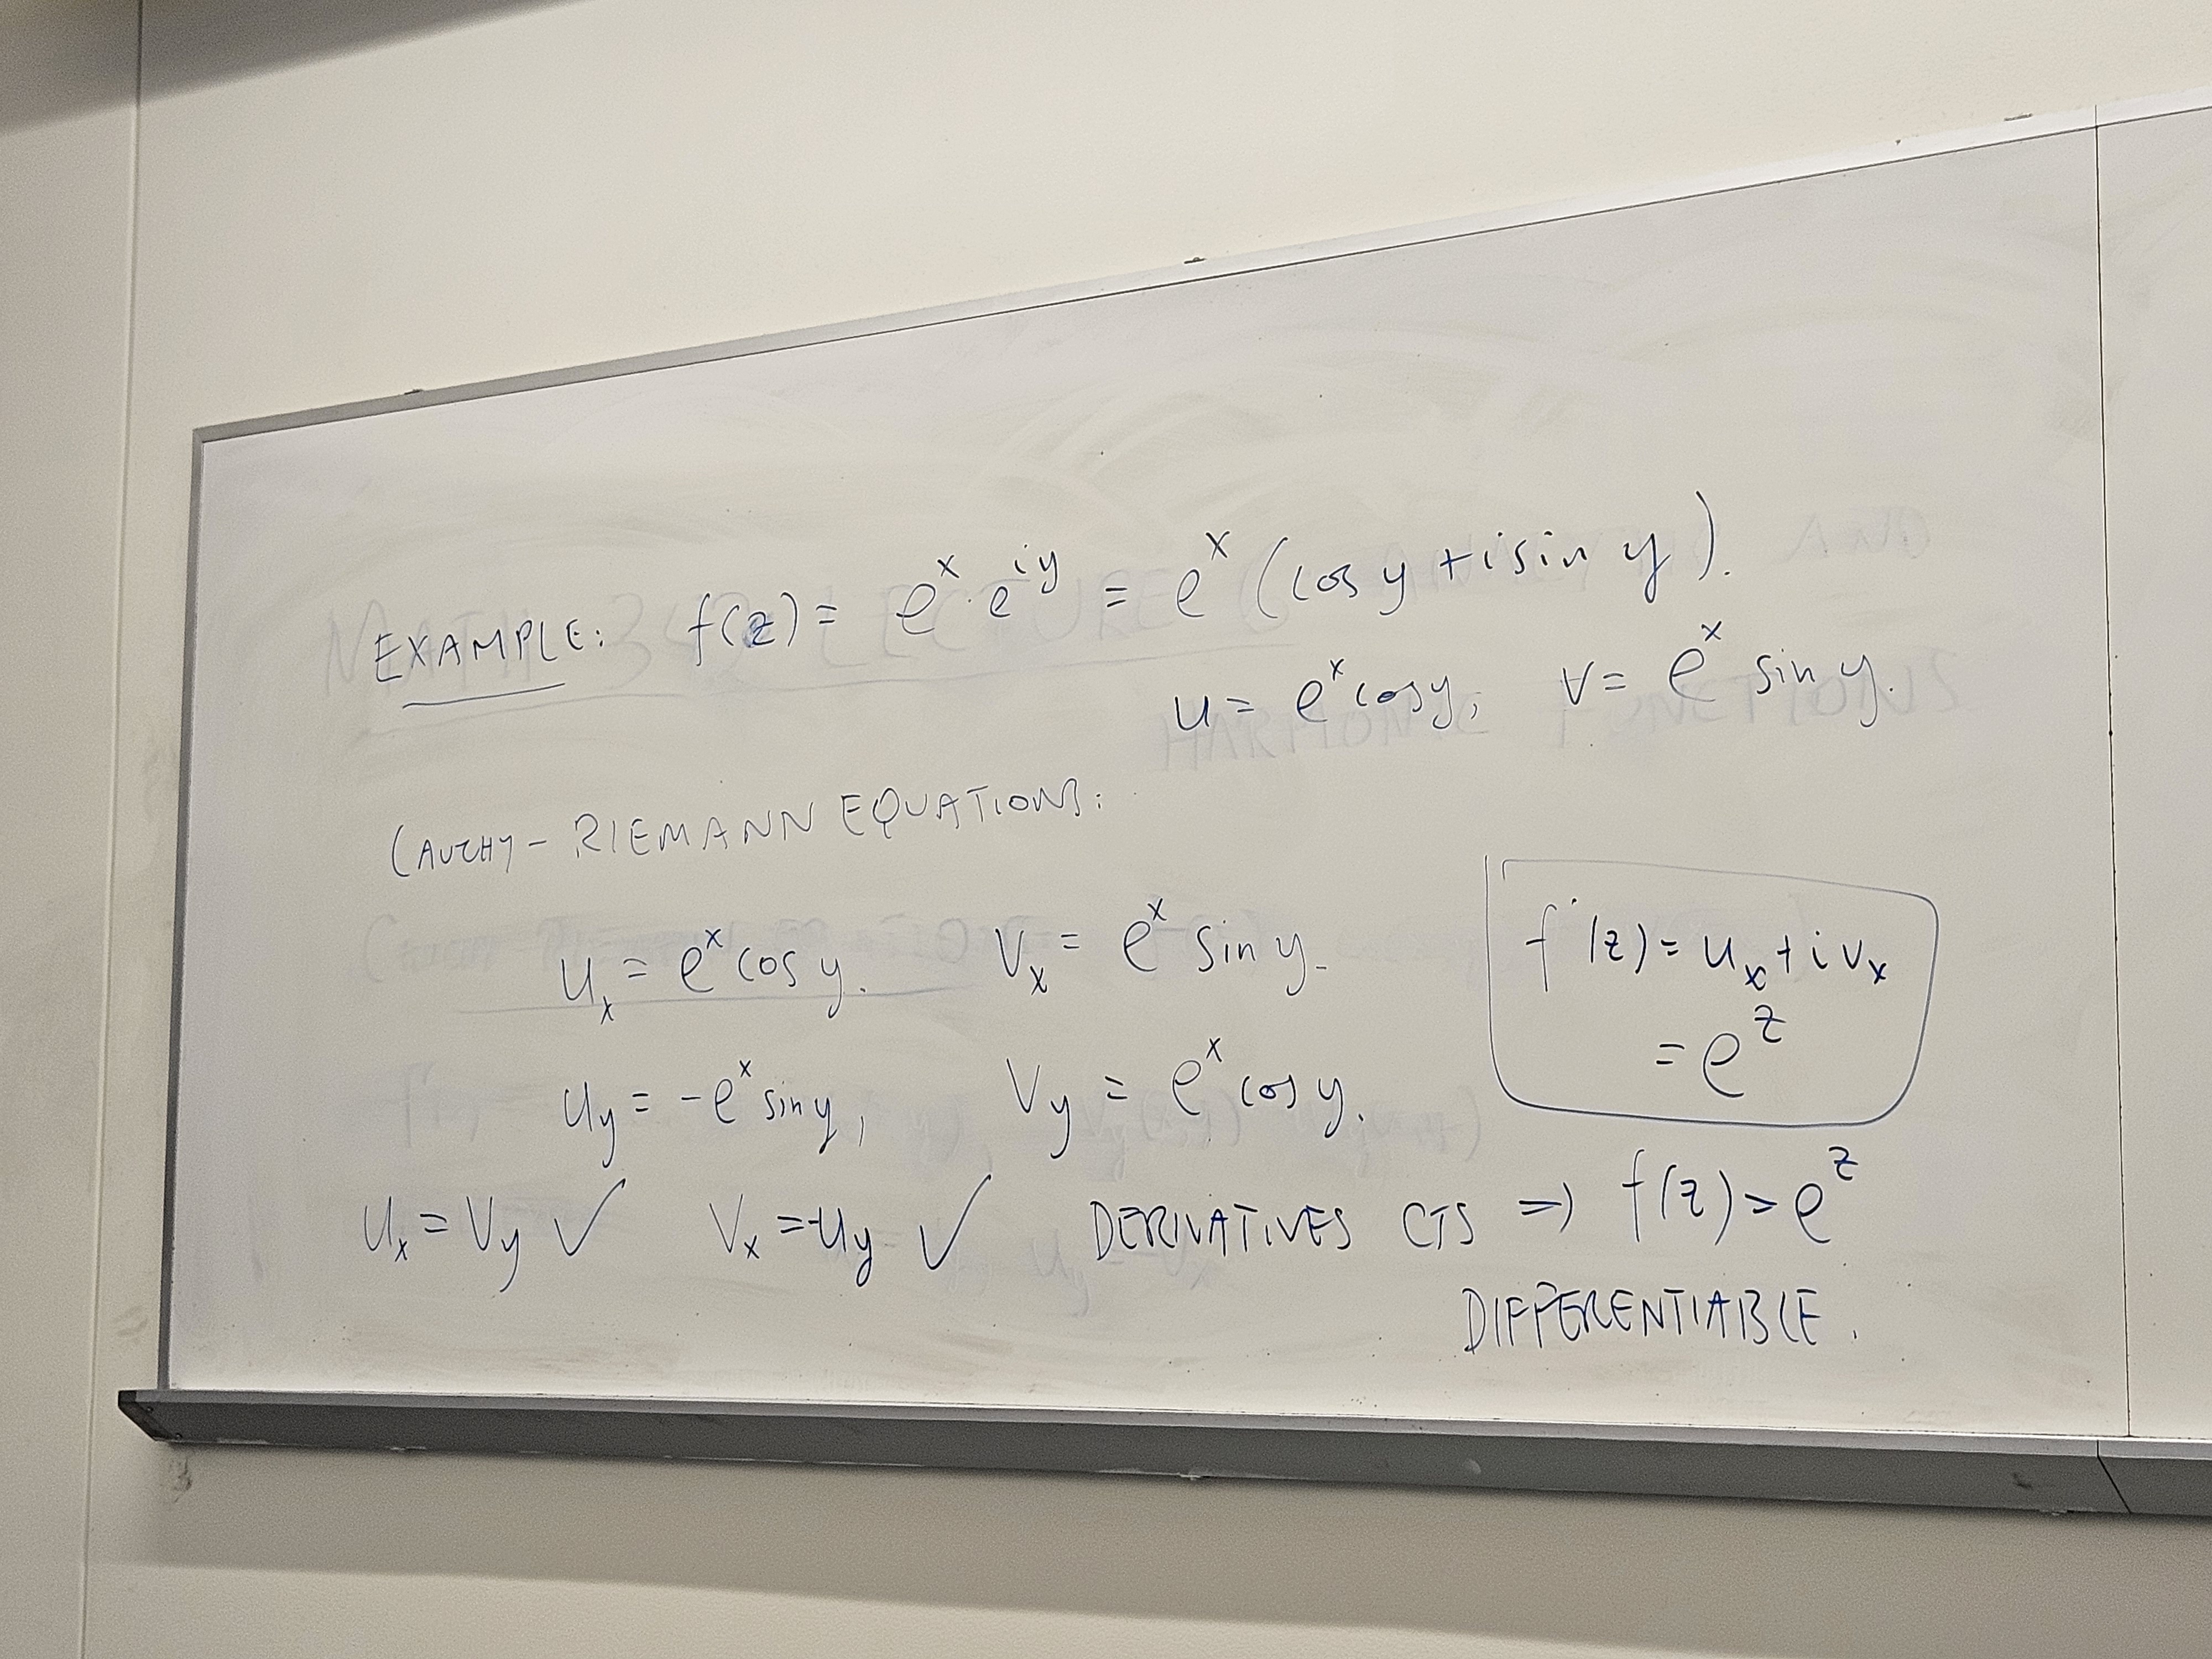 EXAMPLE: f(z) = e^x · e^{iy} = e^x (cos y + i sin y).
u = e^x cos y, v = e^x sin y.
CAUCHY-RIEMANN EQUATIONS:
u_x = e^x cos y. v_x = e^x sin y.
u_y = -e^x sin y, v_y = e^x cos y.
f'(z) = u_x + i v_x
= e^z
u_x = v_y ✓ v_x = -u_y ✓ DERIVATIVES CTS => f(z) = e^z
DIFFERENTIABLE.